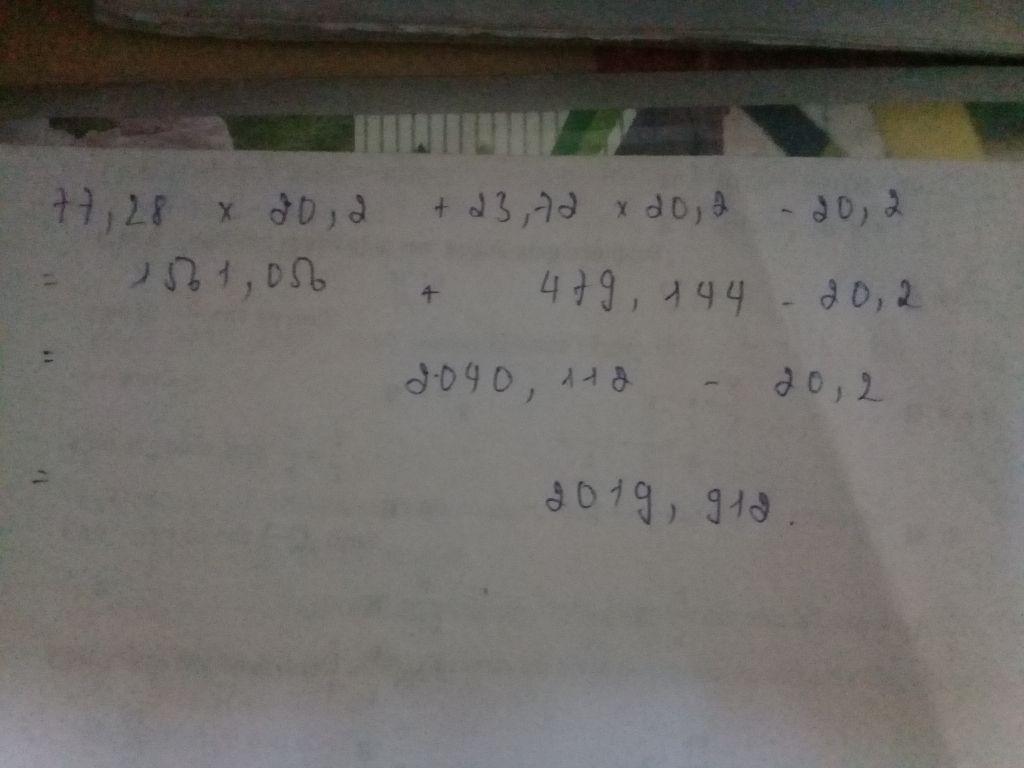 77,28 x 20,2 + 23,72 x 20,2 - 20,2
= 1561,056 + 479,144 - 20,2
= 2040,112 - 20,2
= 2019,912.